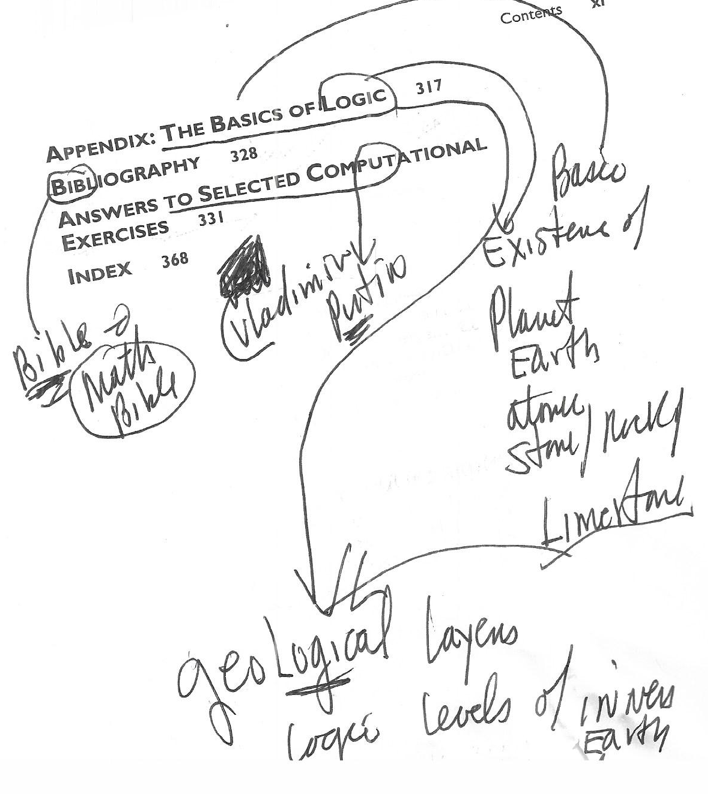 Contents xi
APPENDIX: THE BASICS OF LOGIC 317
BIBLIOGRAPHY 328
ANSWERS TO SELECTED COMPUTATIONAL
EXERCISES 331
INDEX 368
Basic
Existence of
Planet
Earth
stone/Rocks
Limestone
Vladimir
Putin
Bible
Math
Bible
geoLogical Layers
Logic Levels of inner
Earth